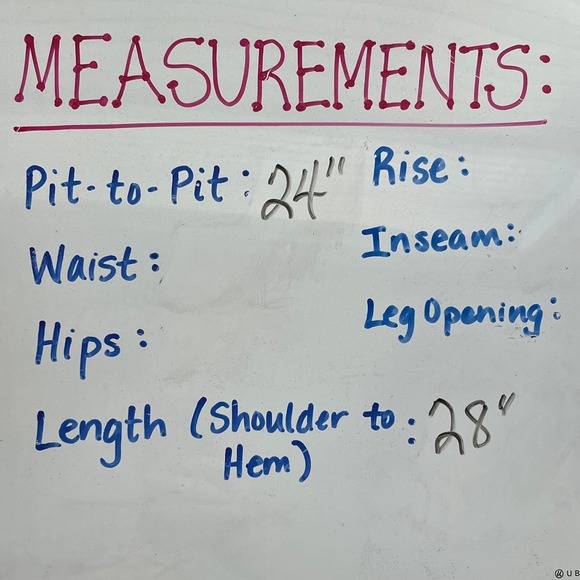 MEASUREMENTS:
Pit-to-Pit: 24"
Rise:
Waist:
Inseam:
Hips:
Leg Opening:
Length (Shoulder to Hem): 28"
UB